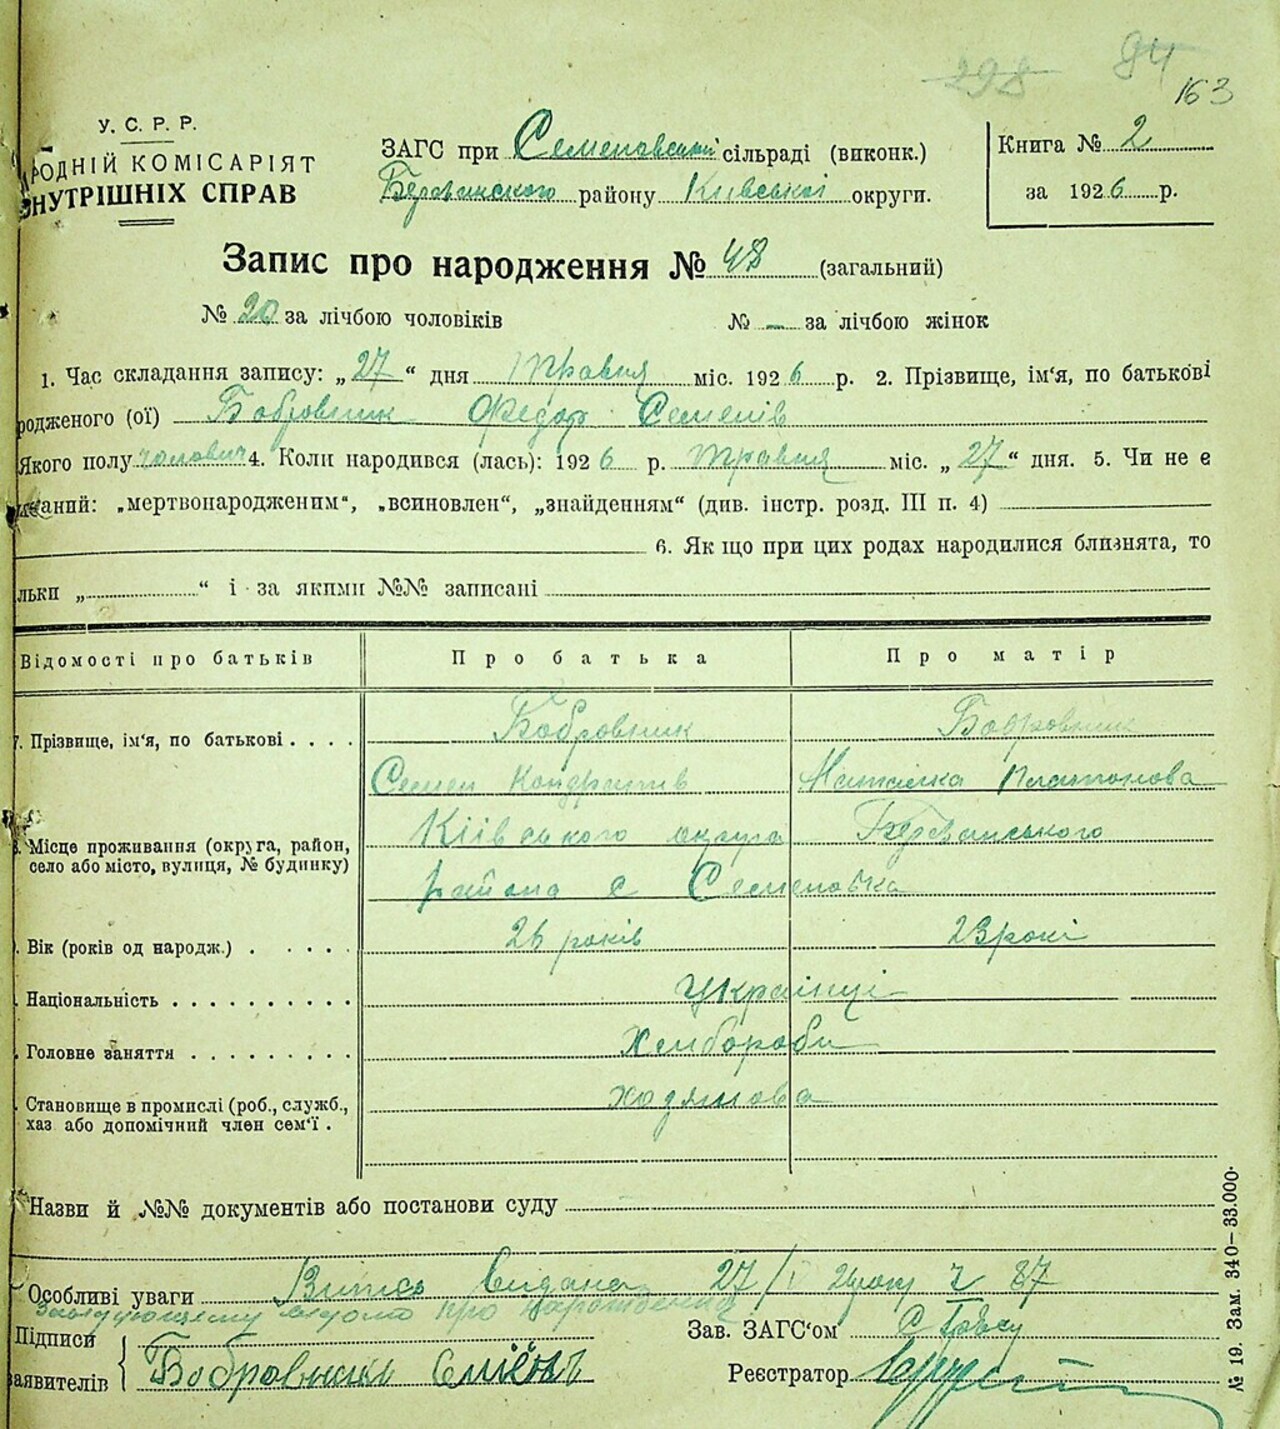 298 94
163
У. С. Р. Р.
РОДНІЙ КОМІСАРІЯТ
ВНУТРІШНІХ СПРАВ
ЗАГС при Семеновський сільраді (виконк.)
Березанського району Київської округи.
Книга № 2
за 1926 р.
Запис про народження № 48 (загальний)
№ 20 за лічбою чоловіків № — за лічбою жінок
1. Час складання запису: „27“ дня Травня міс. 1926 р. 2. Прізвище, ім'я, по батькові
родженого (ої) Бобровник Федор Семенів
Якого полу чоловіч 4. Коли народився (лась): 1926 р. травня міс. „27“ дня. 5. Чи не є
аний: „мертвонародженим“, „всиновлен“, „знайденням“ (див. інстр. розд. III п. 4)
6. Як що при цих родах народилися близнята, то
льки „ “ і за якими №№ записані
Відомості про батьків Про батька Про матір
7. Прізвище, ім'я, по батькові . . . . Бобровник Бобровник
Семен Кондратів Наталка Платонова
Місце проживання (округа, район, село або місто, вулиця, № будинку) Київського округа Березанського
района с Семеновка
Вік (років од народж.) . . . . . 26 років 23 рокі
. Національність . . . . . . . . . . Українці
. Головне заняття . . . . . . . . . Хлібороби
. Становище в промислі (роб., служб., хаз або допомічний член сем'ї .
Назви й №№ документів або постанови суду
Особливі уваги Витяг видано 27/ 26 року 87
про народження
Підписи
аявителів Бобровник Семенъ
Зав. ЗАГС'ом
Реєстратор
№ 19. Зам. 340—33.000.